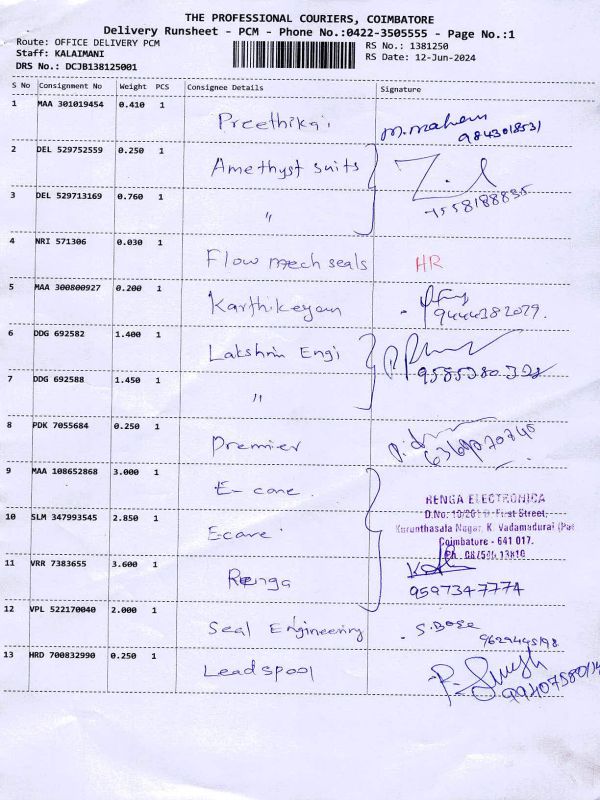 THE PROFESSIONAL COURIERS, COIMBATORE
Delivery Runsheet - PCM - Phone No.:0422-3505555 - Page No.:1
Route: OFFICE DELIVERY PCM
Staff: KALAIMANI
DRS No.: DCJB138125001
RS No.: 1381250
RS Date: 12-Jun-2024
S No Consignment No Weight PCS Consignee Details Signature
1 MAA 301019454 0.410 1 Preethika
M. Mahem
9843018531
2 DEL 529752559 0.250 1 Amethyst suits
7558188835
3 DEL 529713169 0.760 1 "
4 NRI 571306 0.030 1 Flow mech seals HR
5 MAA 300800927 0.200 1 Karthikeyan
9444382079.
6 DDG 692582 1.400 1 Lakshmi Engi
7 DDG 692588 1.450 1 "
8 PDK 7055684 0.250 1 Premier
9 MAA 108652868 3.000 1 E-care.
RENGA ELECTRONICA
First Street,
Kurunthasala Nagar, K. Vadamadurai
Coimbatore - 641 017.
10 SLM 347993545 2.850 1 Ecare
11 VRR 7383655 3.600 1 Renga
9597347774
12 VPL 522170040 2.000 1 Seal Engineering S. Bose
13 HRD 700832990 0.250 1 Leadspool